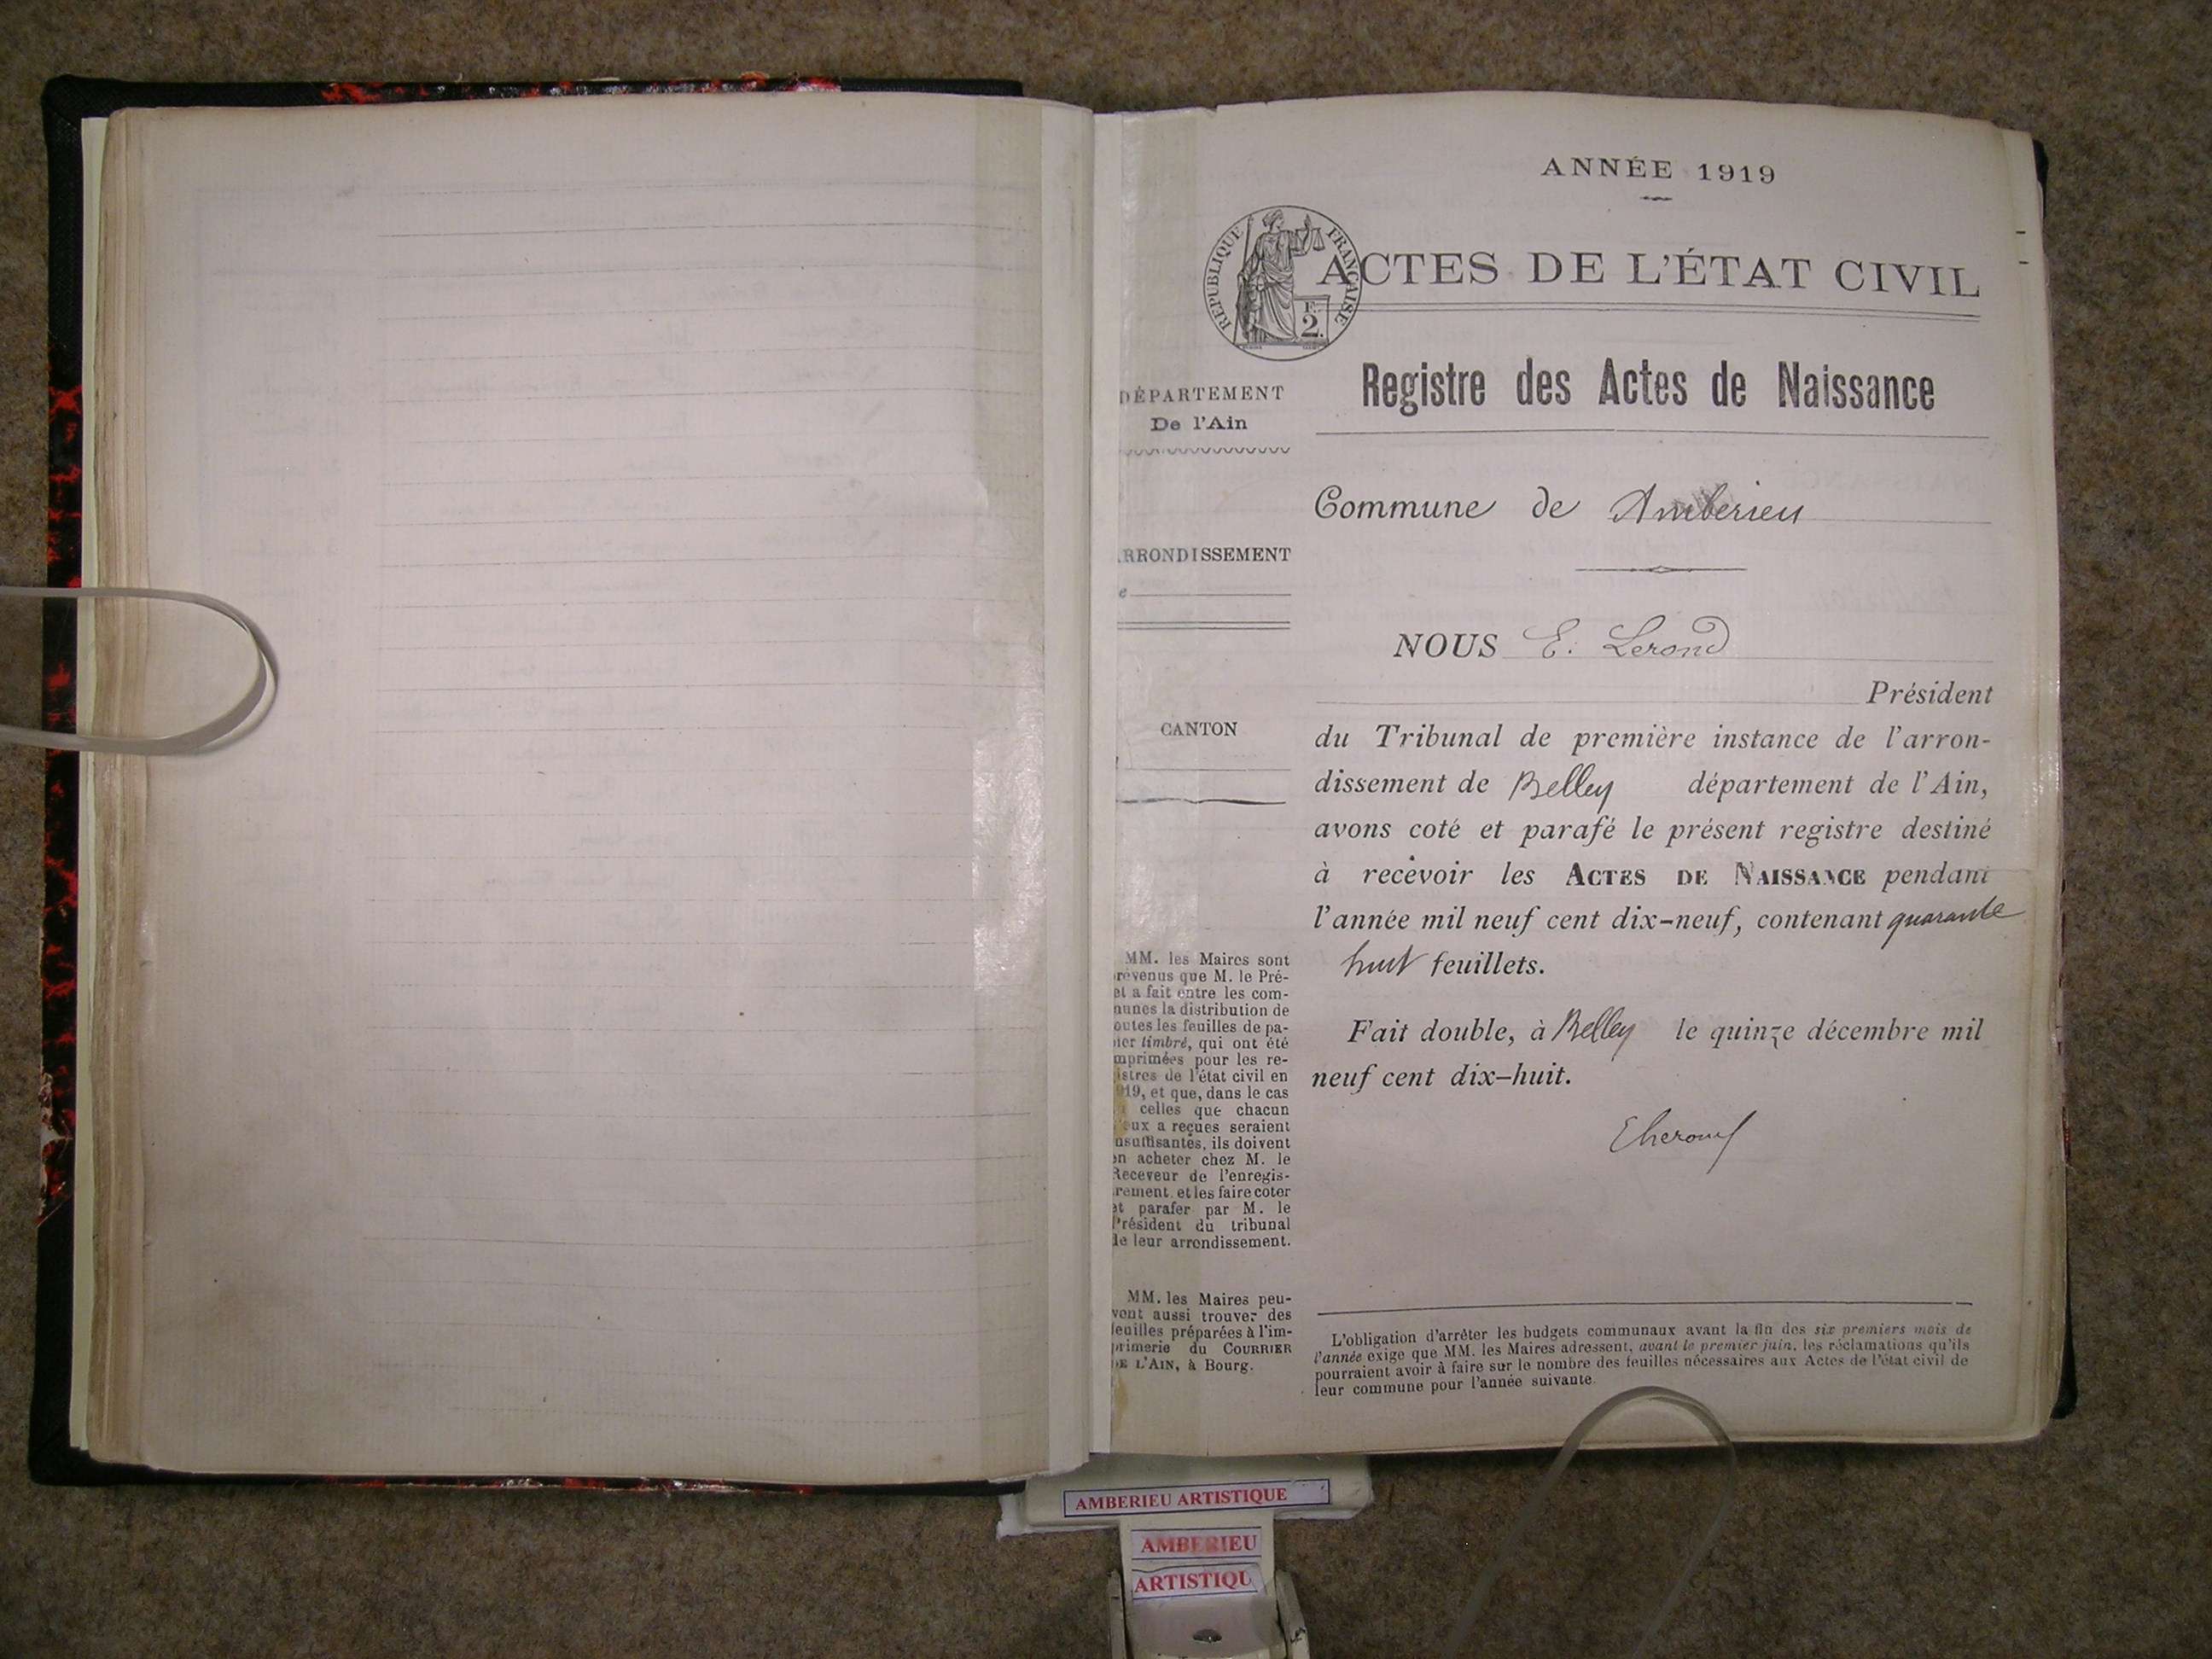 ANNÉE 1919
RÉPUBLIQUE FRANÇAISE
F.
2.
ACTES DE L'ÉTAT CIVIL
Registre des Actes de Naissance
DÉPARTEMENT
De l'Ain
Commune de Amberieu
ARRONDISSEMENT
NOUS E. Lerond
Président
CANTON
du Tribunal de première instance de l'arron-
dissement de Belley département de l'Ain,
avons coté et parafé le présent registre destiné
à recevoir les ACTES DE NAISSANCE pendant
l'année mil neuf cent dix-neuf, contenant quarante
huit feuillets.
Fait double, à Belley le quinze décembre mil
neuf cent dix-huit.
MM. les Maires sont
révenus que M. le Pré-
et a fait entre les com-
munes la distribution de
outes les feuilles de pa-
ier timbré, qui ont été
mprimées pour les re-
istres de l'état civil en
919, et que, dans le cas
celles que chacun
eux a reçues seraient
nsuffisantes, ils doivent
en acheter chez M. le
Receveur de l'enregis-
rement, et les faire coter
et parafer par M. le
Président du tribunal
de leur arrondissement.
MM. les Maires peu-
vent aussi trouver des
feuilles préparées à l'im-
primerie du COURRIER
DE L'AIN, à Bourg.
L'obligation d'arrêter les budgets communaux avant la fin des six premiers mois de
l'année exige que MM. les Maires adressent, avant le premier juin, les réclamations qu'ils
pourraient avoir à faire sur le nombre des feuilles nécessaires aux Actes de l'état civil de
leur commune pour l'année suivante.
AMBERIEU ARTISTIQUE
AMBERIEU
ARTISTIQU